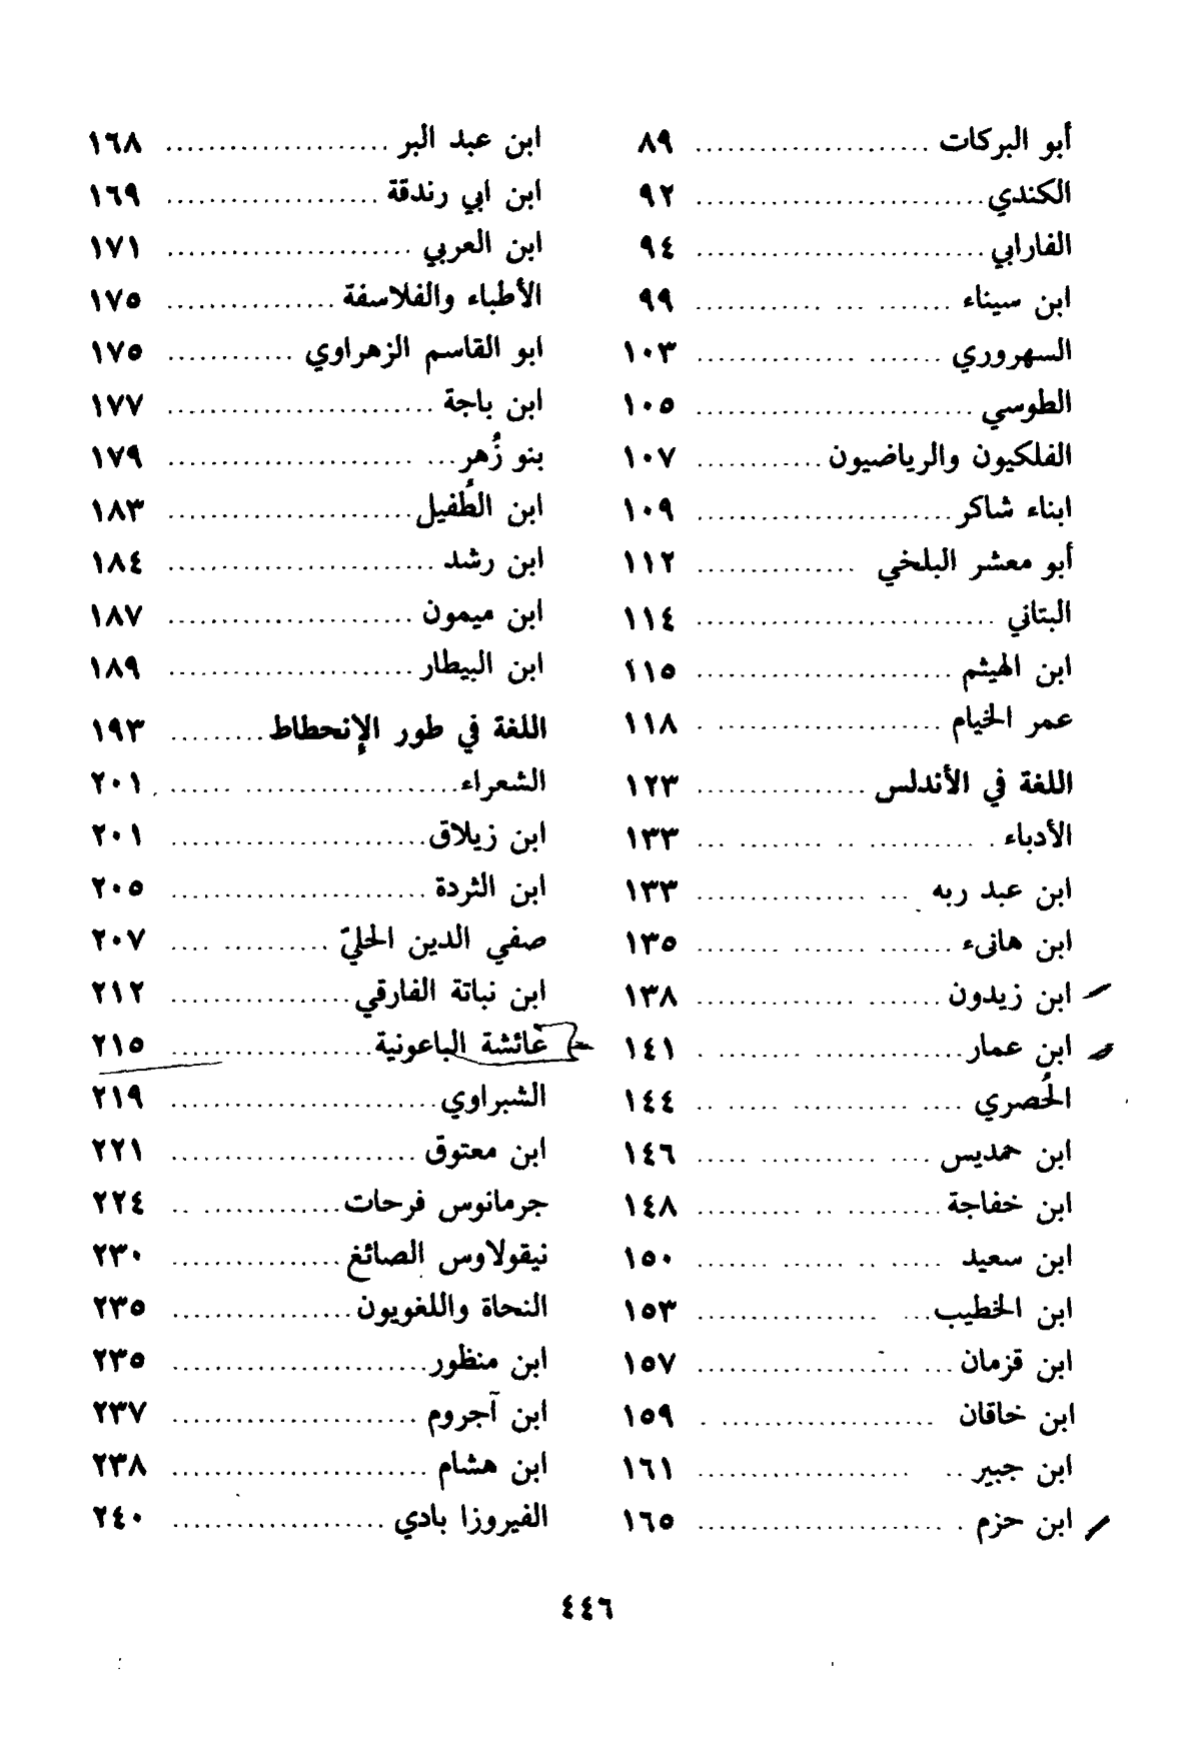 أبو البركات ........ ٨٩
الكندي ........ ٩٢
الفارابي ........ ٩٤
ابن سيناء ........ ٩٩
السهروري ........ ١٠٣
الطوسي ........ ١٠٥
الفلكيون والرياضيون ........ ١٠٧
ابناء شاكر ........ ١٠٩
أبو معشر البلخي ........ ١١٢
البتاني ........ ١١٤
ابن الهيثم ........ ١١٥
عمر الخيام ........ ١١٨
اللغة في الأندلس ........ ١٢٣
الأدباء ........ ١٣٣
ابن عبد ربه ........ ١٣٣
ابن هانىء ........ ١٣٥
ابن زيدون ........ ١٣٨
ابن عمار ........ ١٤١
الحُصري ........ ١٤٤
ابن حمديس ........ ١٤٦
ابن خفاجة ........ ١٤٨
ابن سعيد ........ ١٥٠
ابن الخطيب ........ ١٥٣
ابن قزمان ........ ١٥٧
ابن خاقان ........ ١٥٩
ابن جبير ........ ١٦١
ابن حزم ........ ١٦٥
ابن عبد البر ........ ١٦٨
ابن ابي رندقة ........ ١٦٩
ابن العربي ........ ١٧١
الأطباء والفلاسفة ........ ١٧٥
ابو القاسم الزهراوي ........ ١٧٥
ابن باجة ........ ١٧٧
بنو زُهر ........ ١٧٩
ابن الطُفيل ........ ١٨٣
ابن رشد ........ ١٨٤
ابن ميمون ........ ١٨٧
ابن البيطار ........ ١٨٩
اللغة في طور الإنحطاط ........ ١٩٣
الشعراء ........ ٢٠١
ابن زيلاق ........ ٢٠١
ابن الثردة ........ ٢٠٥
صفي الدين الحليّ ........ ٢٠٧
ابن نباتة الفارقي ........ ٢١٢
عائشة الباعونية ........ ٢١٥
الشبراوي ........ ٢١٩
ابن معتوق ........ ٢٢١
جرمانوس فرحات ........ ٢٢٤
نيقولاوس الصائغ ........ ٢٣٠
النحاة واللغويون ........ ٢٣٥
ابن منظور ........ ٢٣٥
ابن آجروم ........ ٢٣٧
ابن هشام ........ ٢٣٨
الفيروزا بادي ........ ٢٤٠
٤٤٦